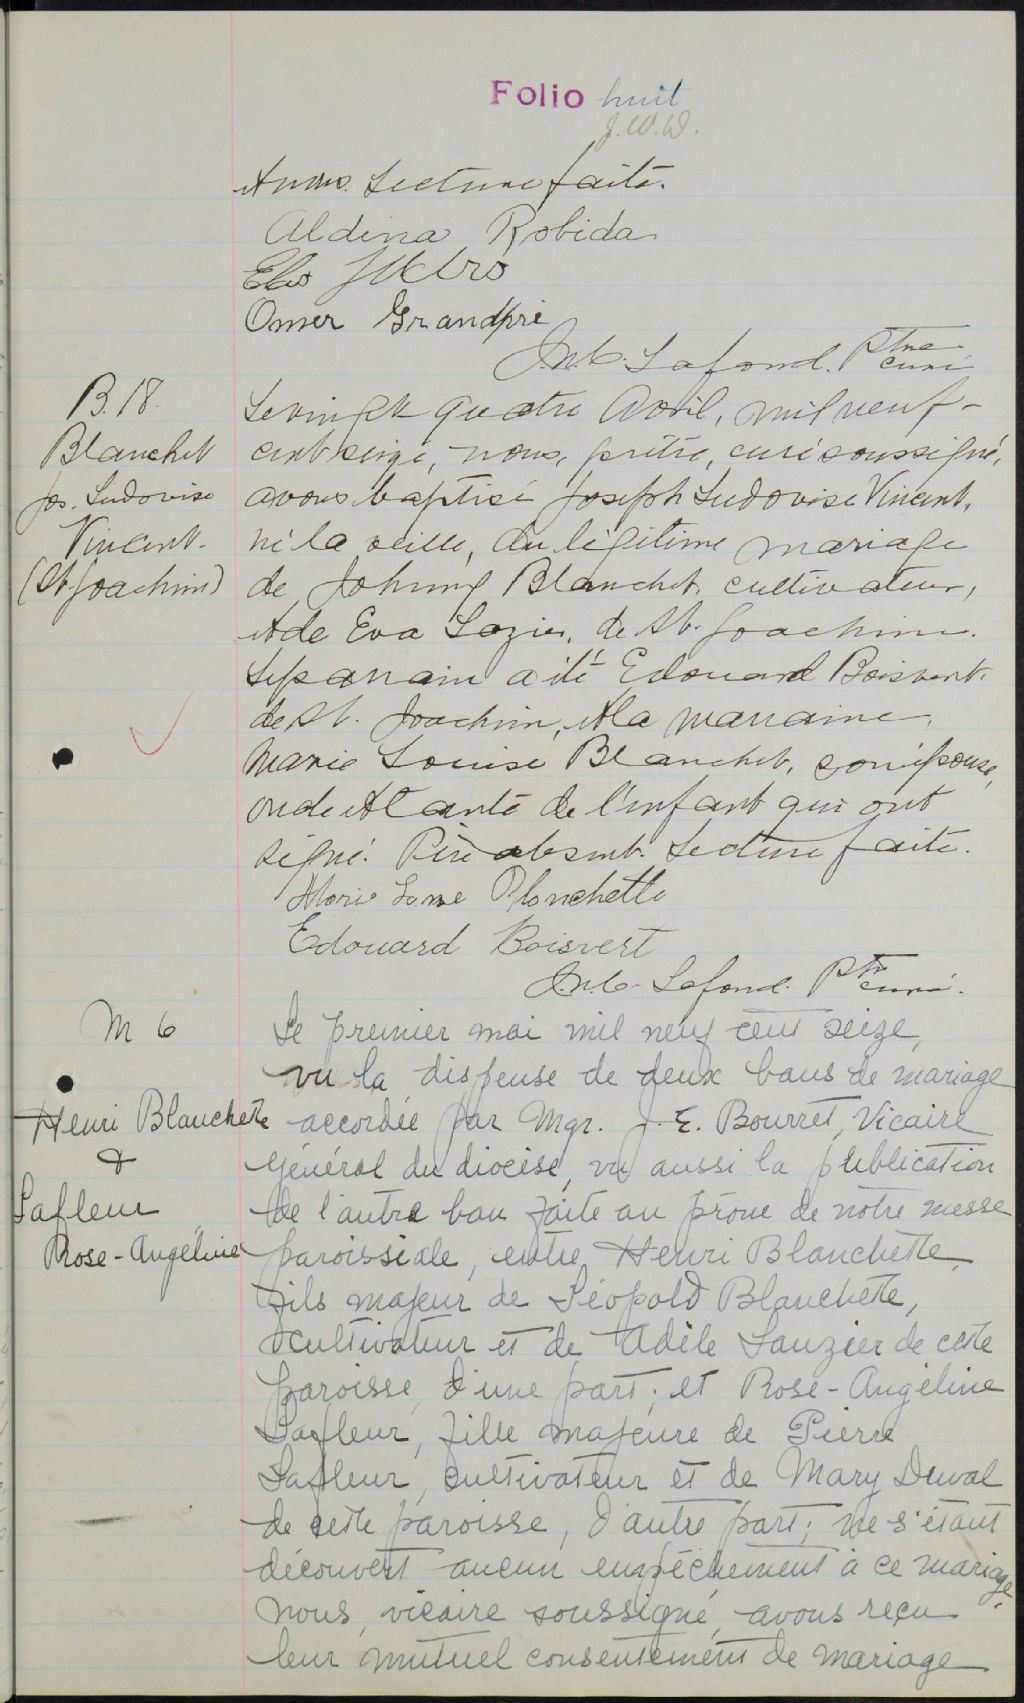 Folio huit
J.W.D.
nous. Lecture faite.
Aldina Robida
Omer Grandpré
J.N.C. Lafond. Ptre curé
B. 18.
Blanchet
Jos. Ludovise
Vincent.
(St Joachim)
Le vingt quatre Avril, mil neuf-
cent seize, nous, prêtre, curé soussigné,
avons baptisé Joseph Ludovise Vincent,
né la veille, du légitime mariage
de Johnny Blanchet, cultivateur,
et de Eva Lozier, de St. Joachim.
Le parrain a été Edouard Boisvert.
de St. Joachim, et la marraine,
Marie Louise Blanchet, son épouse,
oncle et tante de l'enfant qui ont
signé. Père absent. Lecture faite.
Marie Blanchette
Edouard Boisvert
J.N.C. Lafond. Ptre curé.
M 6
Henri Blanchette
&
Lafleur
Rose-Angéline
Le premier mai mil neuf cent seize,
vu la dispense de deux bans de mariage
accordée par Mgr. J. E. Bourret, Vicaire
Général du diocèse, vu aussi la publication
de l'autre ban faite au prône de notre messe
paroissiale, entre Henri Blanchette,
fils majeur de Léopold Blanchette,
cultivateur et de Adèle Lauzier de cette
paroisse, d'une part; et Rose-Angéline
Lafleur, fille majeure de Pierre
Lafleur, cultivateur et de Mary Duval
de cette paroisse, d'autre part; ne s'étant
découvert aucun empêchement à ce mariage.
Nous, vicaire soussigné, avons reçu
leur mutuel consentement de mariage